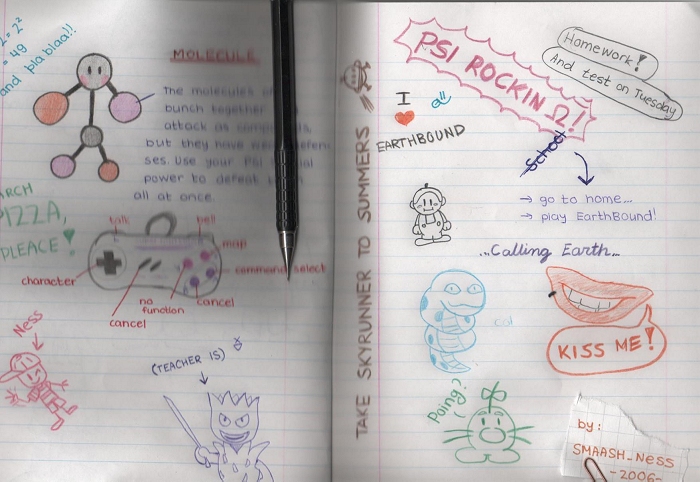 = 2²
= 49
and bla blaa!!
MOLECULE
The molecules
bunch together
attack as
but they have
ses. Use your PSI
power to defeat
all at once.
ARCH
PIZZA,
PLEACE!
talk
bell
map
command select
cancel
no
function
cancel
character
Ness
(TEACHER IS)
TAKE SKYRUNNER TO SUMMERS
PSI ROCKIN Ω!
Homework!
And test on Tuesday
I
EARTHBOUND
School
→ go to home...
→ play EarthBound!
...Calling Earth...
KISS ME!
Poing?
by:
SMAASH_NESS
-2006-